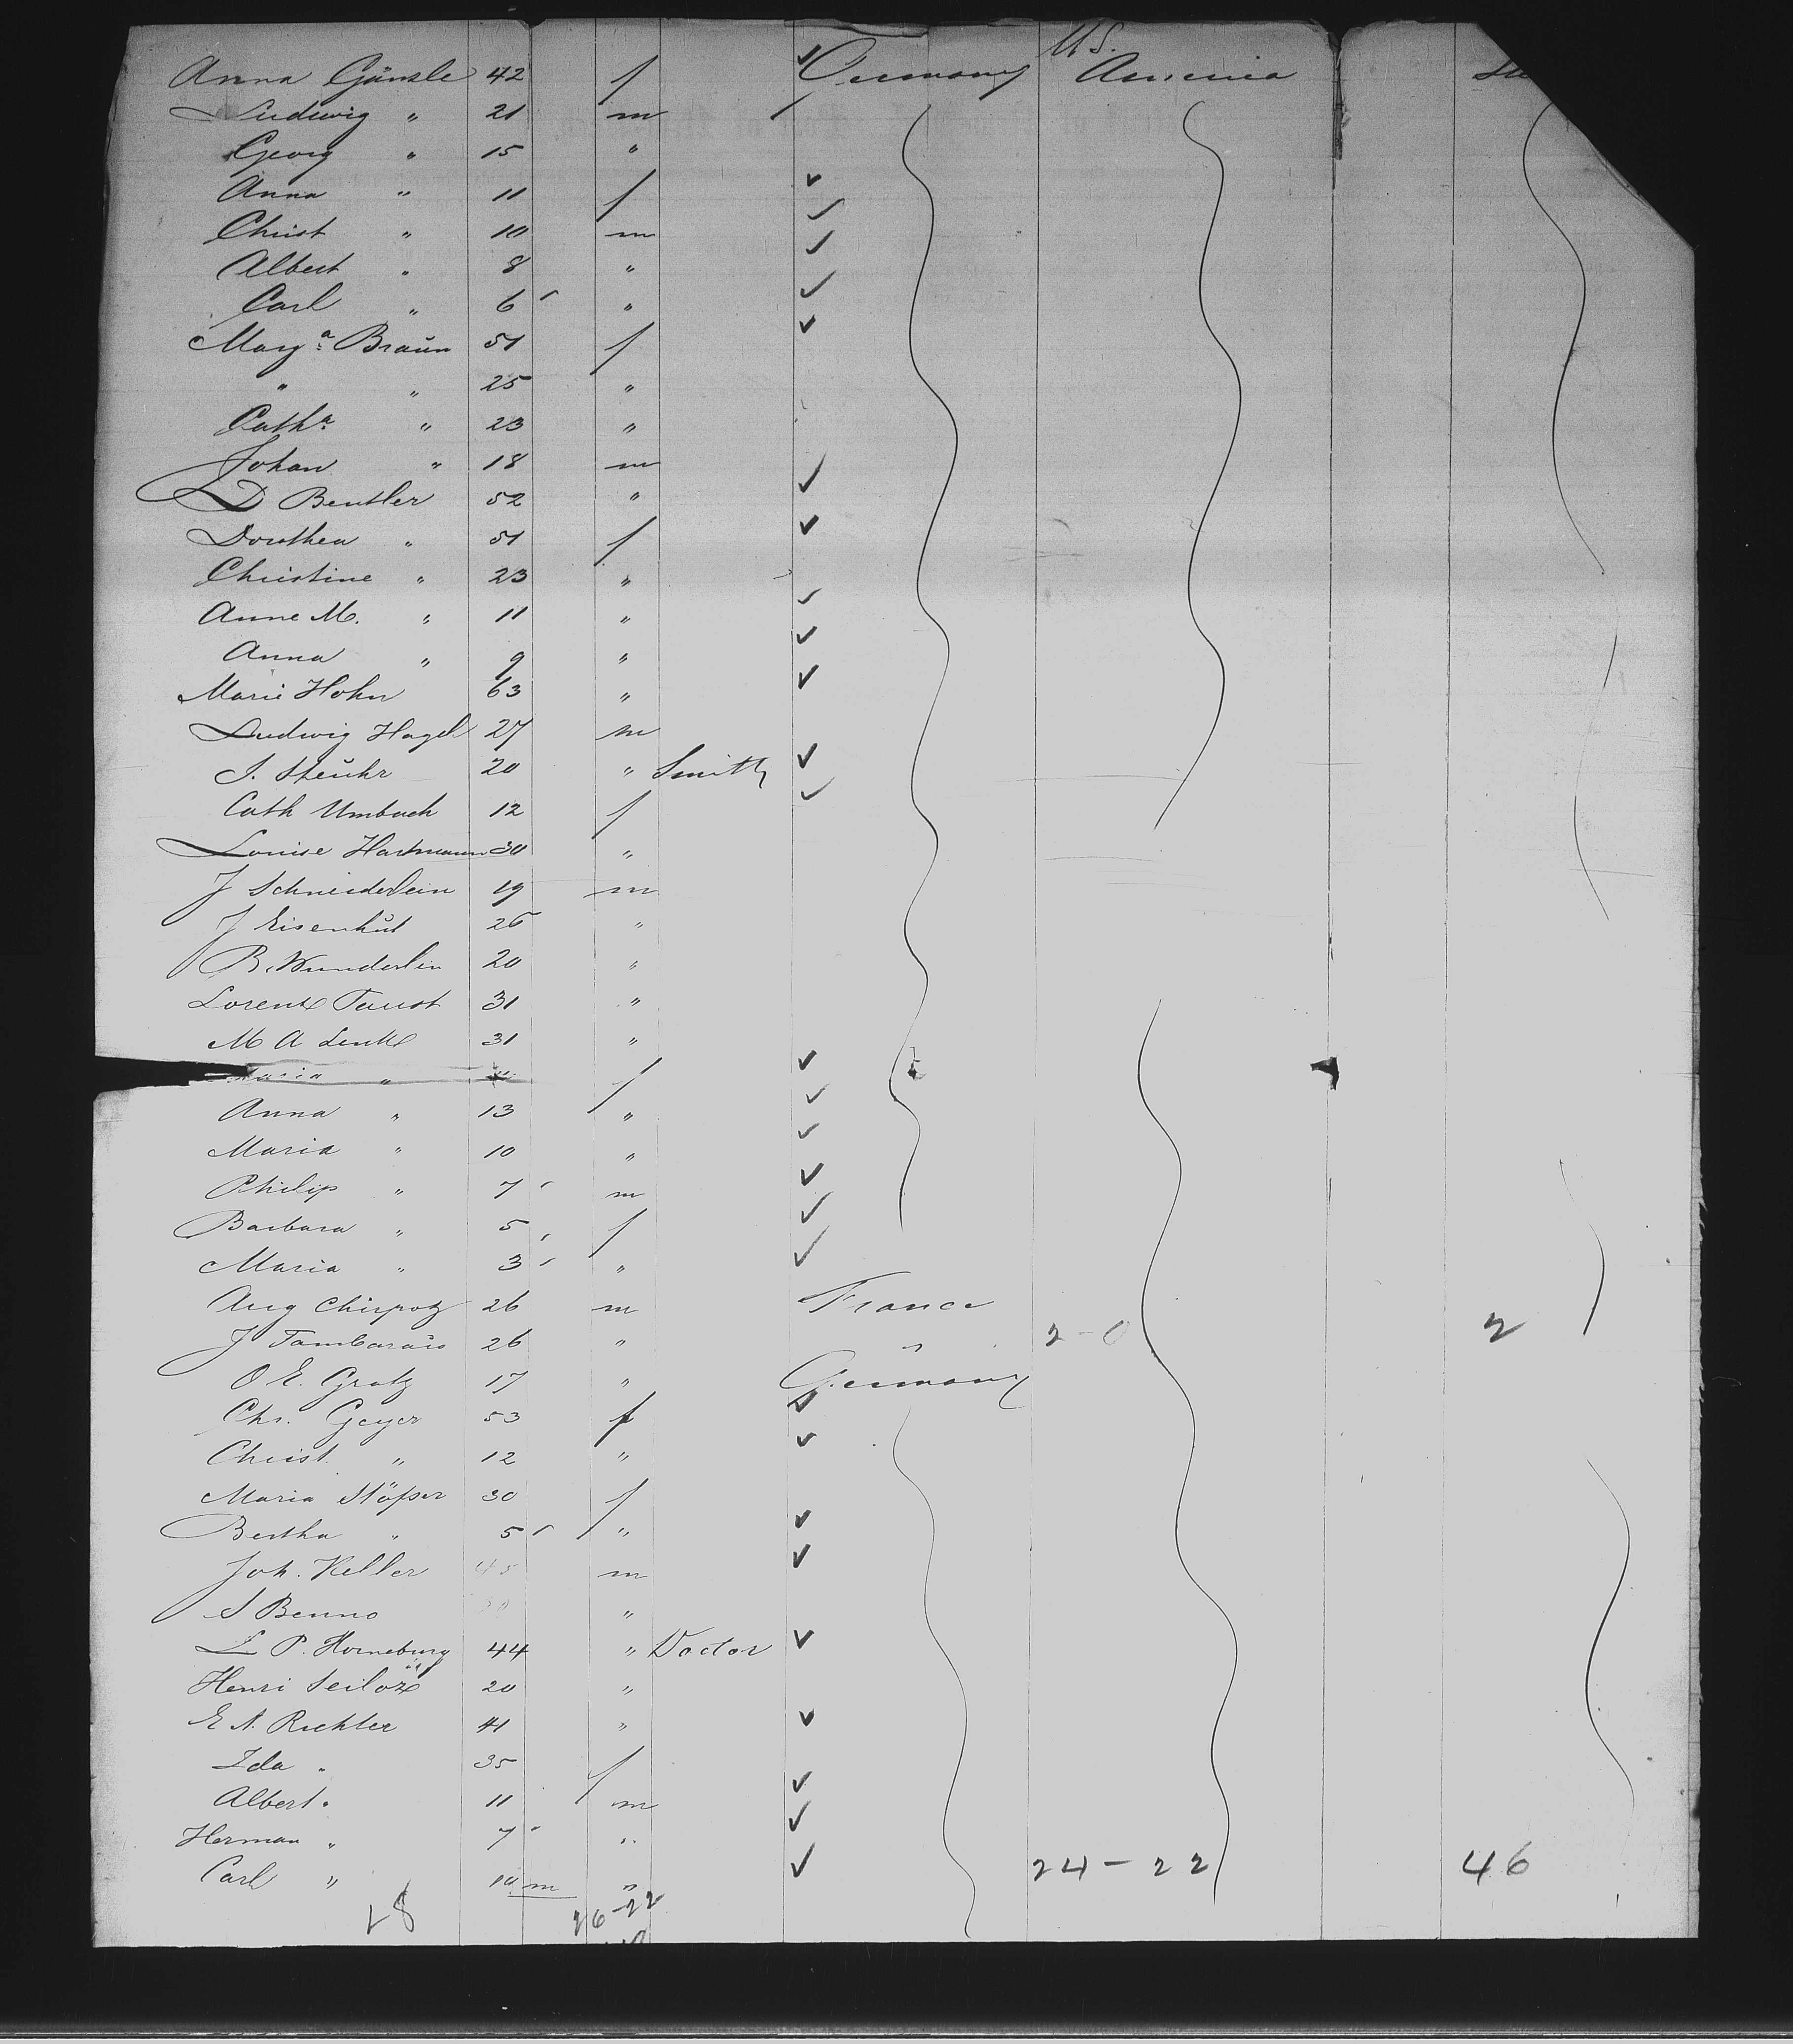 U.S.
Anna Gänzle 42 f Germany America
Ludwig " 21 m
Georg " 15 "
Anna " 11 f
Christ " 10 m
Albert " 8 "
Carl " 6 "
Marga Braun 51 f
" " 25 "
Catha " 23 "
Johan " 18 m
D Beutler 52 "
Dorothea " 51 f
Christine " 23 "
Anne M. " 11 "
Anna " 9 "
Marie Hohn 63 "
Ludwig Hagel 27 m
J. Steuhr 20 " Smith
Cath Umbach 12 f
Louise Hartmann 30 "
J Schneiderlein 19 m
J Eisenhut 26 "
B. Wunderlin 20 "
Lorenz Faust 31 "
M A Lenk 31 "
Maria " f
Anna " 13 "
Maria " 10 "
Philip " 7 m
Barbara " 5 f
Maria " 3 "
Aug Chirpoz 26 m France
J 26 " " 2-0 2
O E. Gratz 17 " Germany
Chr. Geyer 53 f
Christ. " 12 "
Maria Stösser 30 f
Bertha " 5 "
Joh. Keller 45 m
S Benno "
L P. Horneburg 44 " Doctor
Henri 20 "
E A. Richter 41 "
Ida " 35 f
Albert " 11 m
Herman " 7 "
Carl " 10 m " 24-22 46
26-22